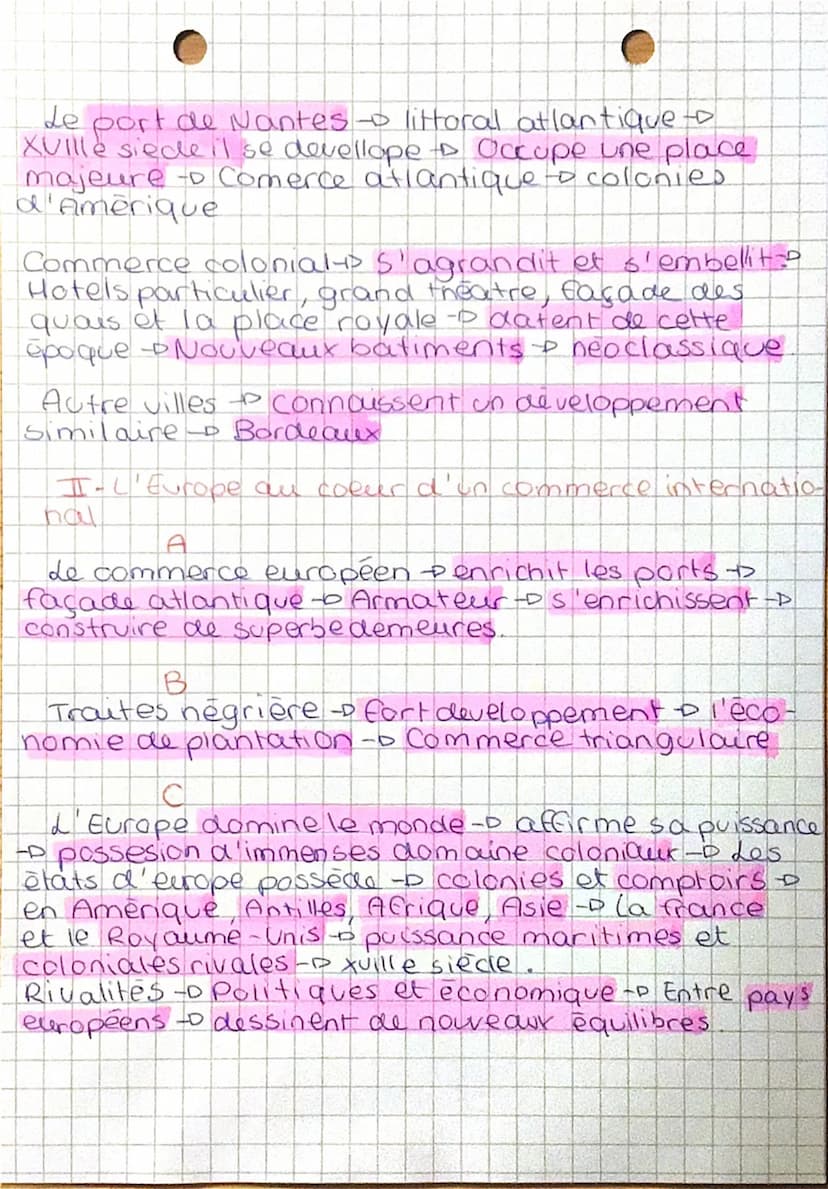 Le port de Nantes → littoral atlantique →
XVIIIe siècle il se devellope → Occupe une place
majeure → Comerce atlantique → colonies
d'Amérique
Commerce colonial → s'agrandit et s'embellit →
Hotels particulier, grand théatre, façade des
quais et la place royale → datent de cette
époque → Nouveaux batiments → néoclassique
Autre villes → connaissent un développement
similaire → Bordeaux
II - L'Europe au coeur d'un commerce internatio-
nal
A
Le commerce européen → enrichit les ports →
façade atlantique → Armateur → s'enrichissent →
construire de superbe demeures.
B
Traites négrière → fort developpement → l'éco-
nomie de plantation → Commerce triangulaire
C
L'Europe domine le monde → affirme sa puissance
→ possesion d'immenses domaine coloniaux → Les
états d'europe possède → colonies et comptoirs →
en Amérique, Antilles, Afrique, Asie → La france
et le Royaume-Unis → puissance maritimes et
coloniales rivales → XVIIIe siècle.
Rivalités → Politiques et économique → Entre pays
européens → dessinent de nouveaux équilibres.